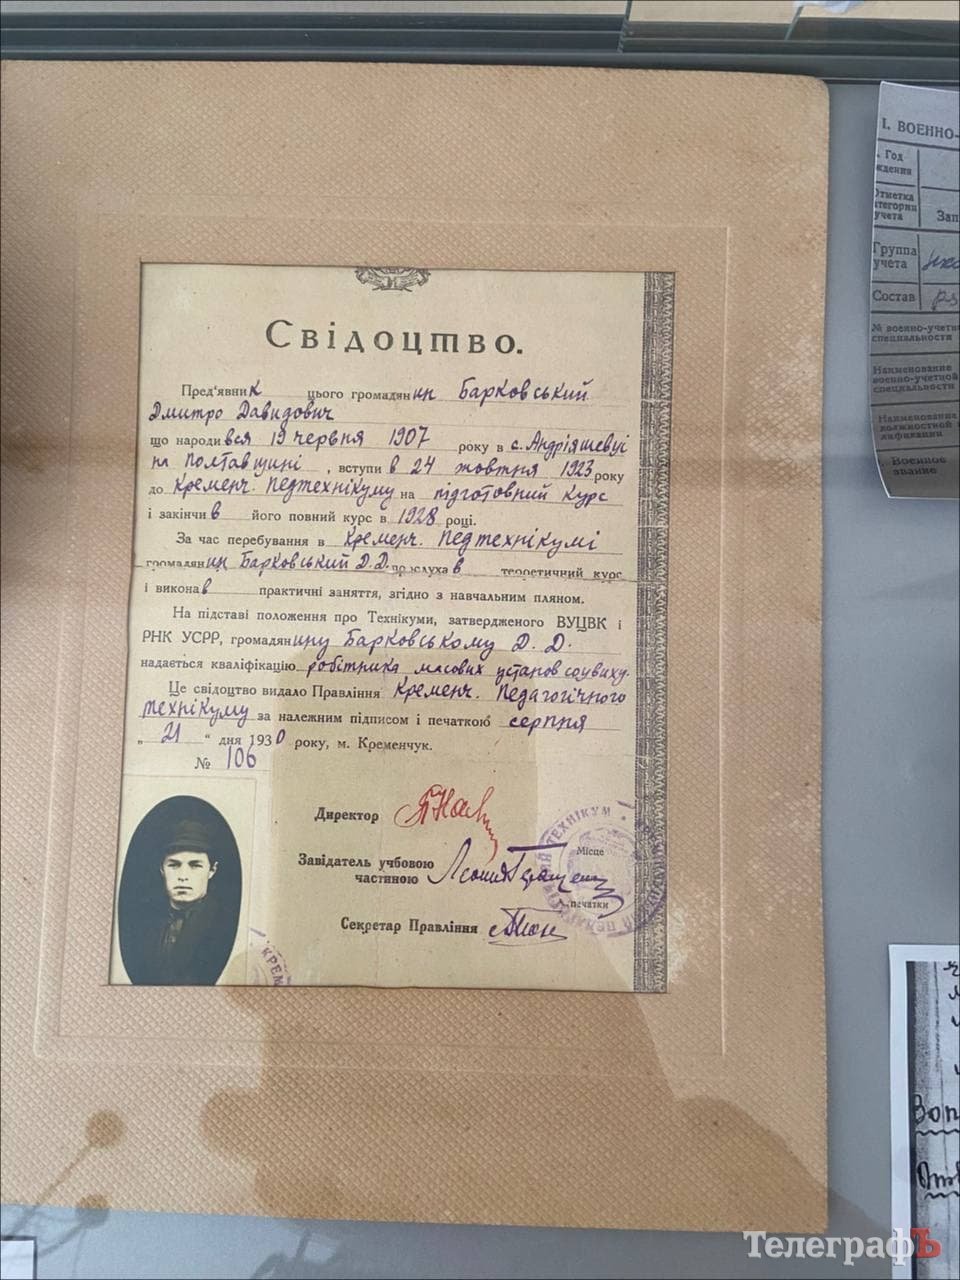 Свідоцтво.
Пред'явник цього громадянин Барковський
Дмитро Давидович
що народився 19 червня 1907 року в с. Андріяшевці
на Полтавщині, вступив 24 жовтня 1923 року
до Кременч. Педтехнікуму на підготовний курс
і закінчив його повний курс в 1928 році.
За час перебування в Кременч. Педтехнікумі
громадянин Барковський Д.Д. прослухав теоретичний курс
і виконав практичні заняття, згідно з навчальним пляном.
На підставі положення про Технікуми, затвердженого ВУЦВК і
РНК УСРР, громадянину Барковському Д. Д.
надається кваліфікацію робітника масових установ соцвиху.
Це свідоцтво видало Правління Кременч. Педагогічного
технікуму за належним підписом і печаткою серпня
„ 21 “ дня 1930 року, м. Кременчук.
№ 106
Директор
Завідатель учбовою
частиною
Секретар Правління
Місце
печатки
ТЕХНІКУМ
КРЕМ
I. ВОЕННО-
Год
ждения
Отметка
категории
учета
Зап
Группа
учета
Состав
№ военно-учетн
специальности
Наименование
военно-учетной
специальности
Наименование
должностной
лификации
Военное
звание
Воп
ТелеграфЪ